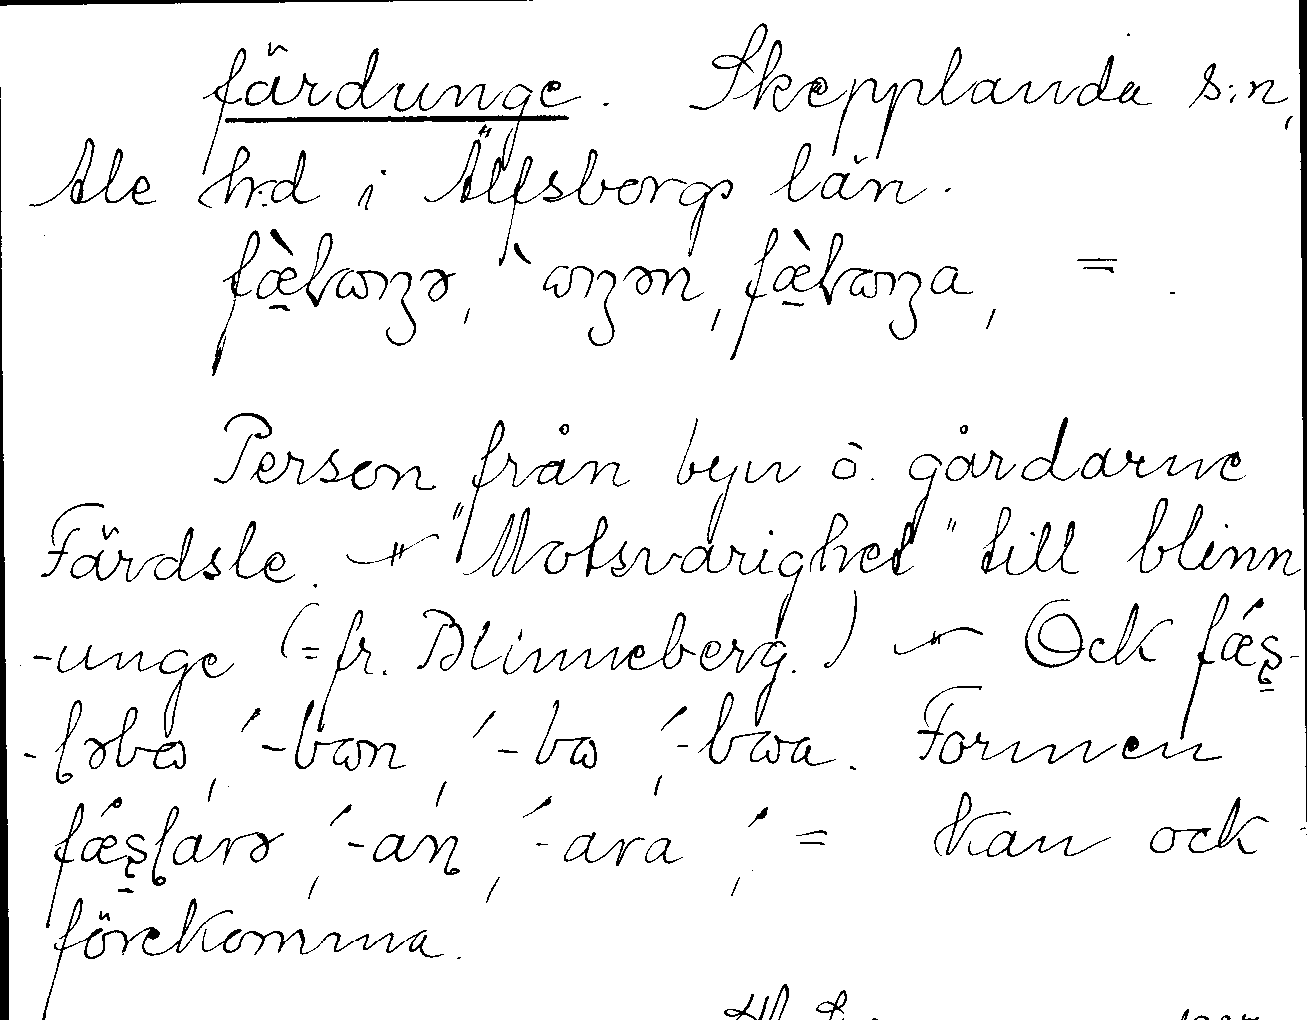 färdunge. Skepplanda s:n,
Ale h:d i Älfsborgs län.
=.
Person från byn o. gårdarne
Färdsle. "Motsvarighet" till blinn
-unge (= fr. Blinneberg.) Ock fǽʂ-
-ləbɷ, ´-bɷn, ´-bɷ, ´-bɷa. Formen
fǽʂlarə, ´-an, ´-ara, ´= kan ock
förekomma.